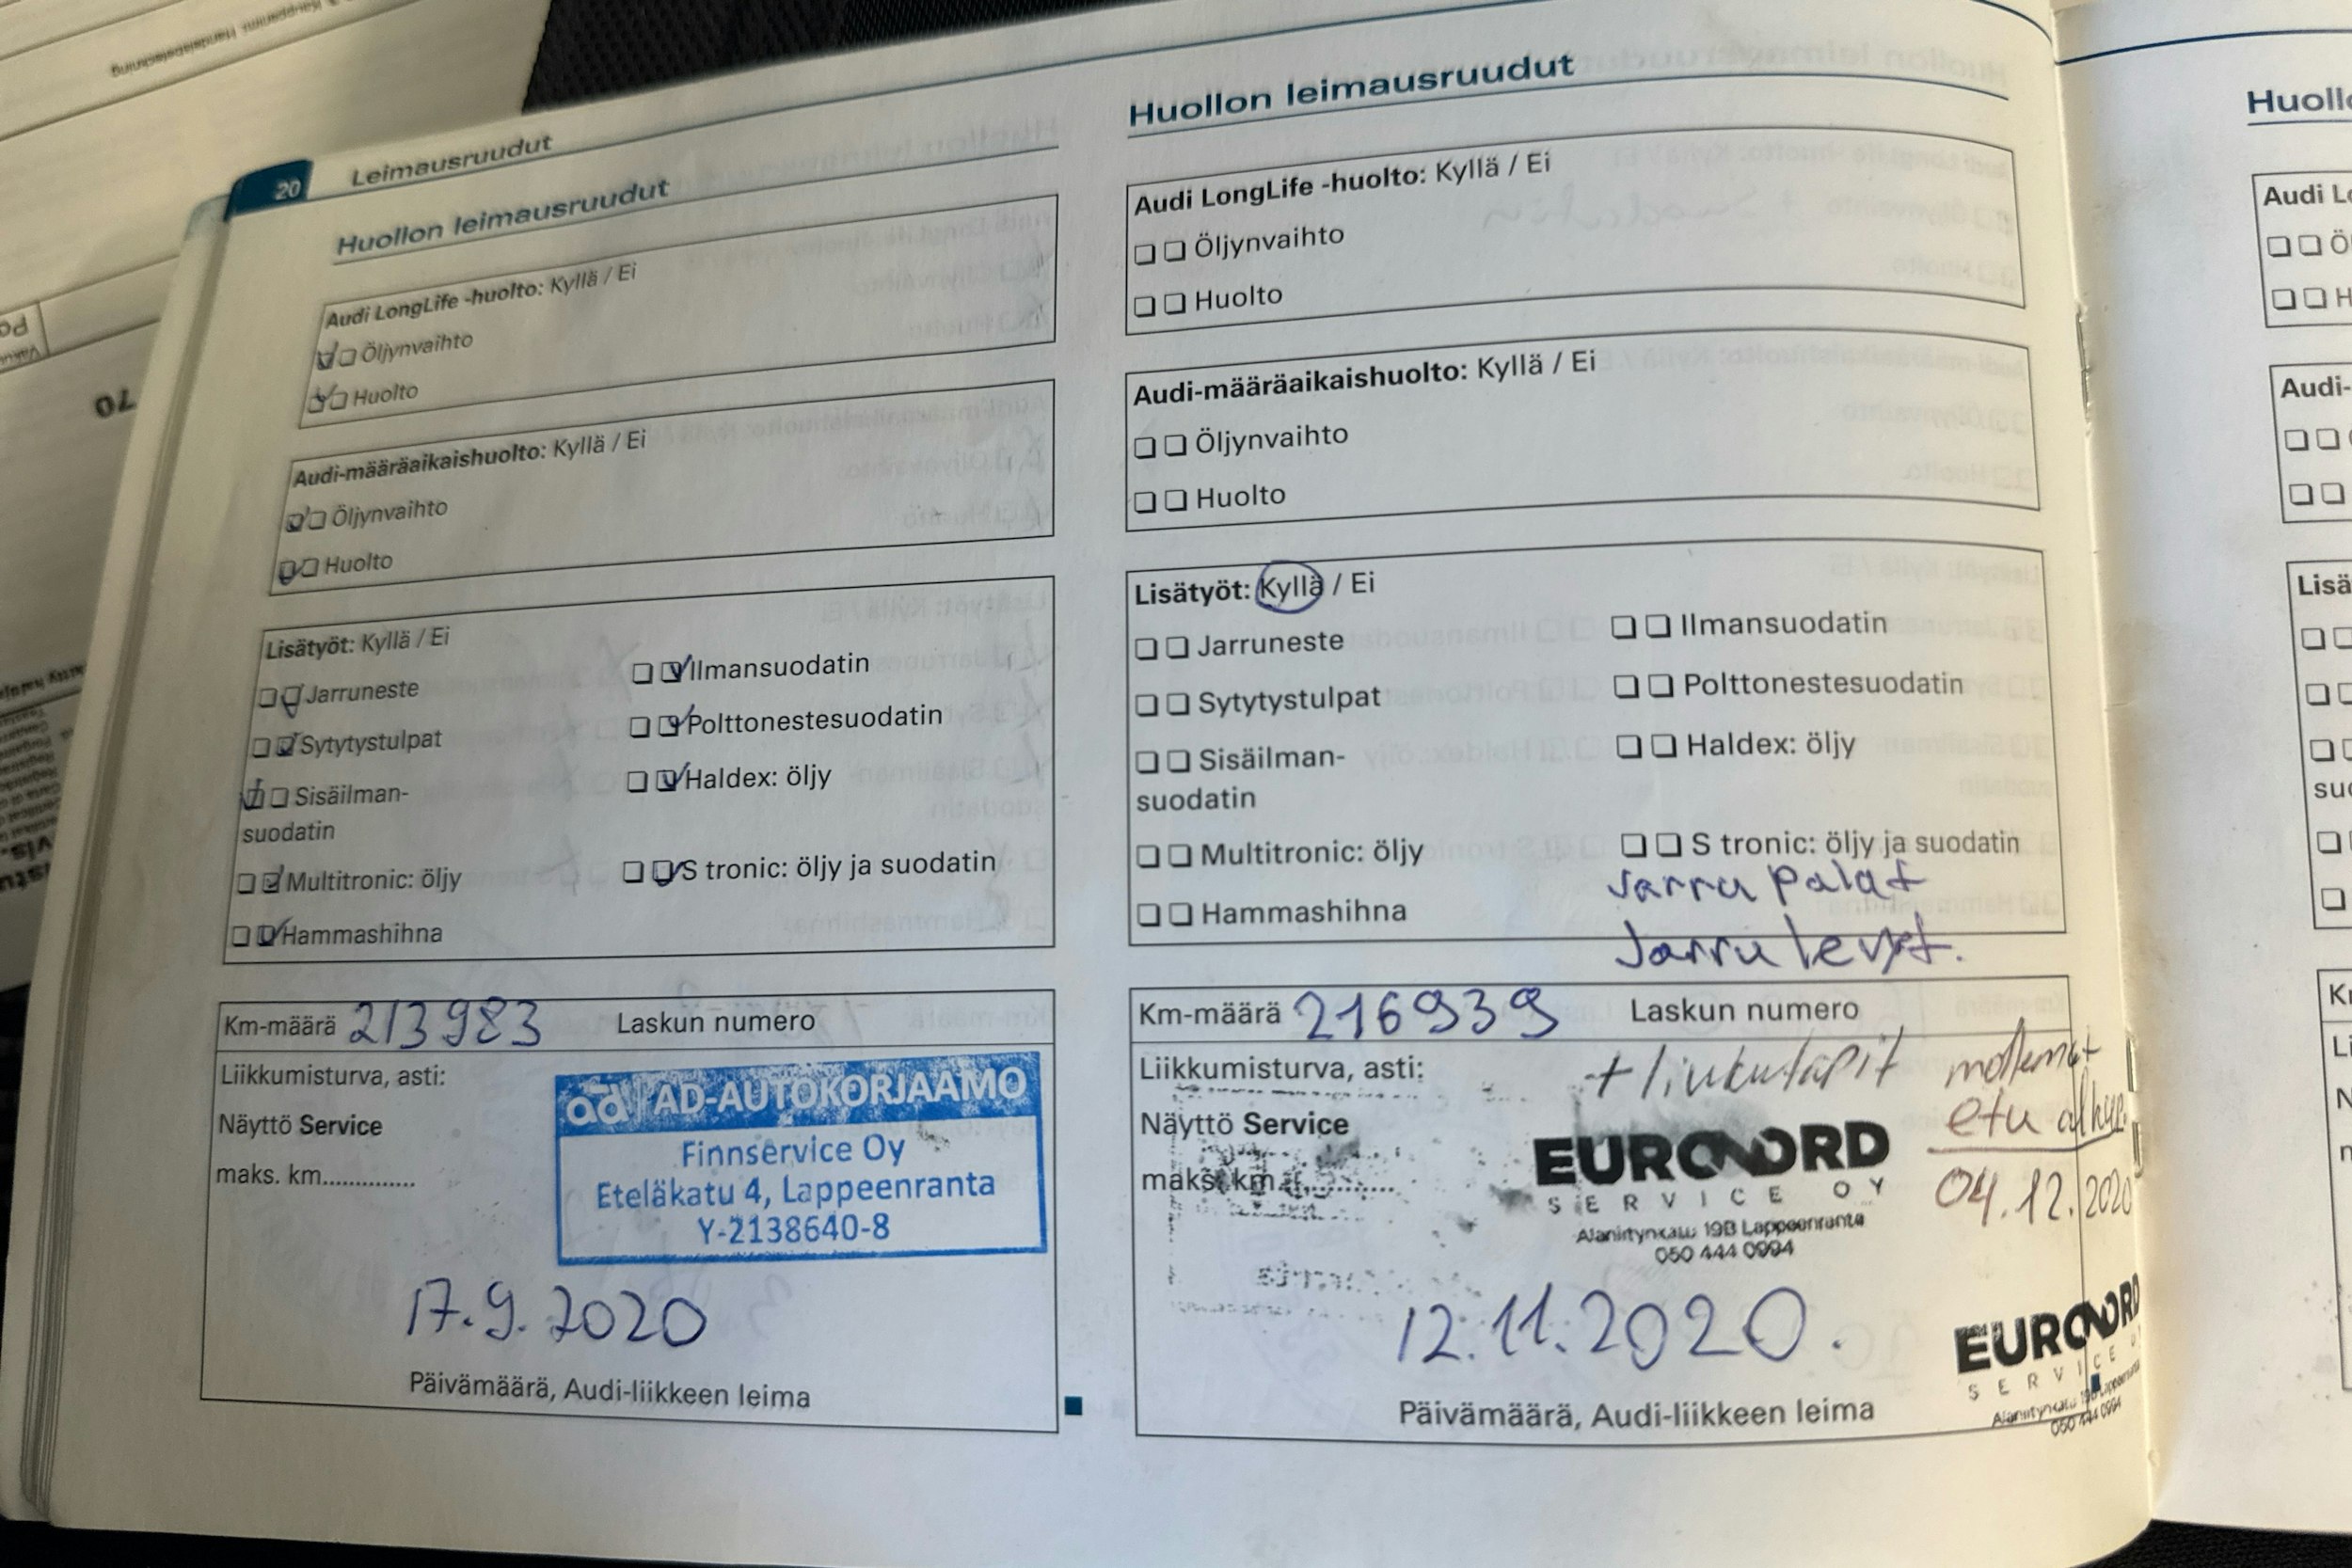 20
Leimausruudut
Huollon leimausruudut
Audi LongLife -huolto: Kyllä / Ei
Öljynvaihto
Huolto
Audi-määräaikaishuolto: Kyllä / Ei
Öljynvaihto
Huolto
Lisätyöt: Kyllä / Ei
Jarruneste
Sytytystulpat
Sisäilman-
suodatin
Multitronic: öljy
Hammashihna
Ilmansuodatin
Polttonestesuodatin
Haldex: öljy
S tronic: öljy ja suodatin
Km-määrä 213983 Laskun numero
Liikkumisturva, asti:
Näyttö Service
maks. km..............
ad AD-AUTOKORJAAMO
Finnservice Oy
Eteläkatu 4, Lappeenranta
Y-2138640-8
17.9.2020
Päivämäärä, Audi-liikkeen leima
Huollon leimausruudut
Audi LongLife -huolto: Kyllä / Ei
Öljynvaihto
Huolto
Audi-määräaikaishuolto: Kyllä / Ei
Öljynvaihto
Huolto
Lisätyöt: Kyllä / Ei
Jarruneste
Sytytystulpat
Sisäilman-
suodatin
Multitronic: öljy
Hammashihna
Ilmansuodatin
Polttonestesuodatin
Haldex: öljy
S tronic: öljy ja suodatin
Jarru palat
Jarru levyt.
Km-määrä 216939 Laskun numero
Liikkumisturva, asti:
Näyttö Service
maks. km
+ liukutapit molemmat
etu
04.12.2020
EURONORD
SERVICE OY
19B Lappeenranta
050 444 0994
12.11.2020.
Päivämäärä, Audi-liikkeen leima
EURONORD
SERVICE
050 444 0994
Huoll
Audi L
Ö
H
Audi-
Lisä
su